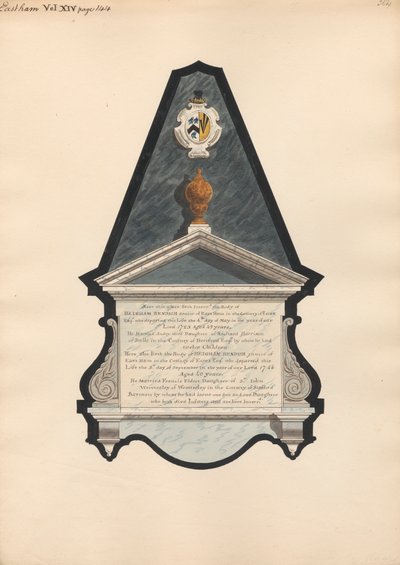 Eastham Vol XIV page 144
364
Near this place lieth Interr'd the Body of
HEIGHAM BENDISH senior of East Ham in the County of Essex
Esq. who departed this Life the 4th day of May in the year of our
Lord 1723 Aged 49 years,
He Married daughter of Harrison
of Balls in the County of Hertford Esq. by whom he had
twelve Children
Here also lieth the Body of HEIGHAM BENDISH junior of
East Ham in the County of Essex Esq. who departed this
Life the 5th day of September in the year of our Lord 1746
Aged 60 years.
He Married Frances Eldest Daughter of Sr. John
Wolstenholme in the County of
Baronet by whom he had issue one Son and one Daughter
who both died Infants and are here Interr'd